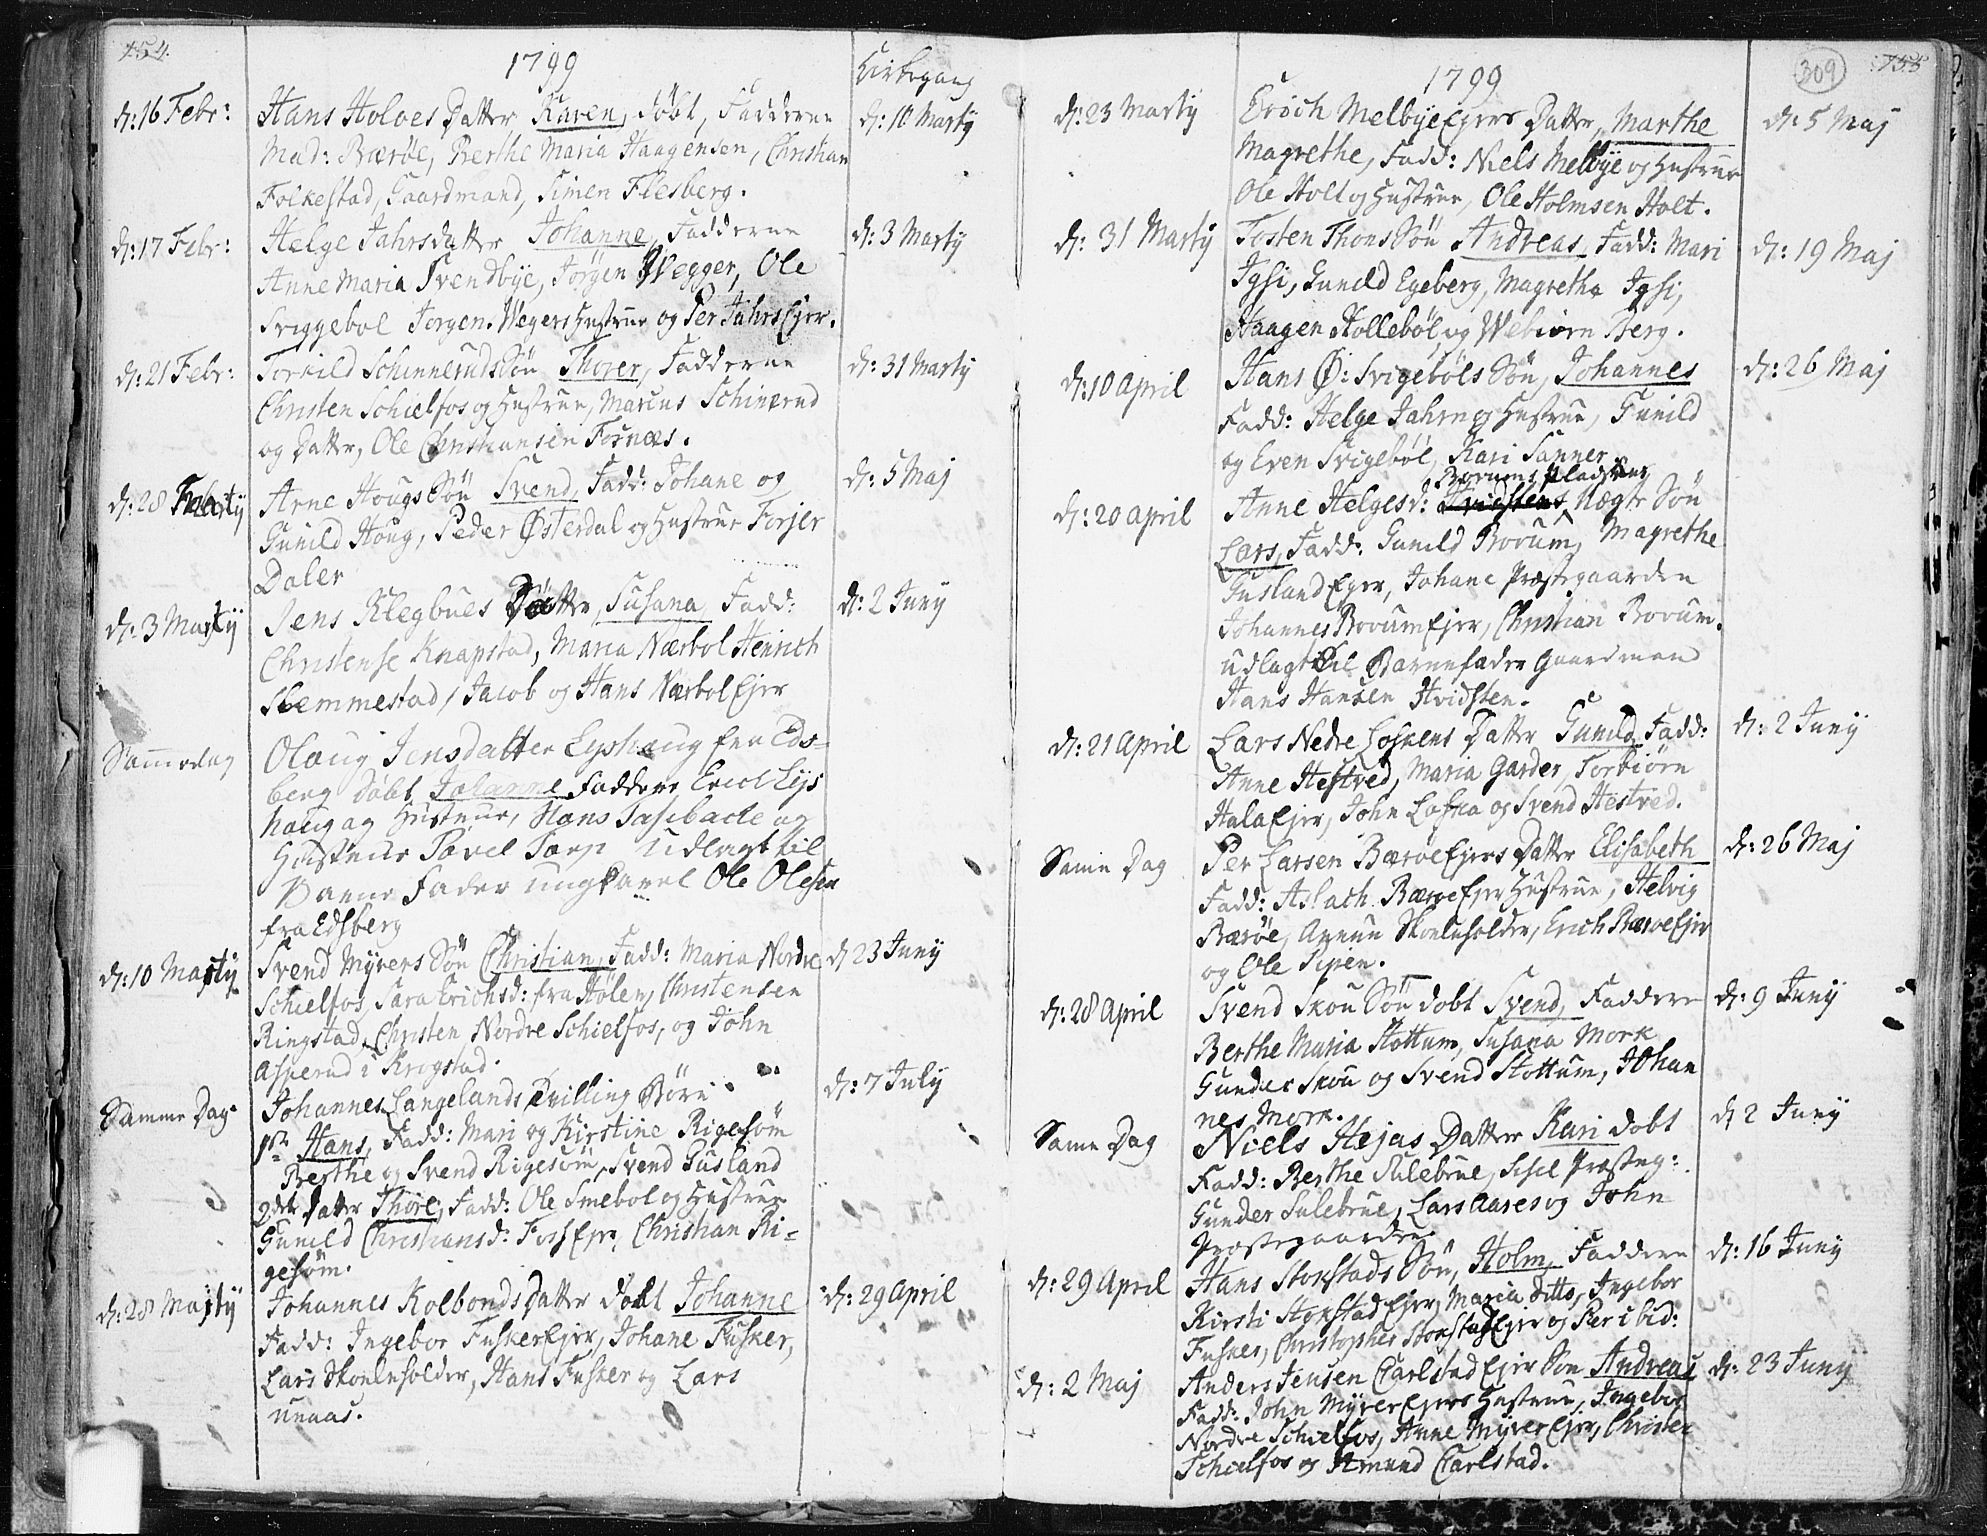 454.
1799
Kirkegang
d: 16 Febr:
Hans Holoes Datter Karen, døbt, Fadderne
d: 10 Marty
Mad: Bærøe, Berthe Maria Haagensen, Christian
Folkestad, Gaardmand, Simen Flesberg.
d: 17 Febr:
Helge Jahrs datter Johanne, Fadderne
d: 3 Marty
Anne Maria Svendbye, Jørgen Wegger, Ole
Sviggebøl Jørgen Wegers Hustrue og Per Jahrs Ejer.
d: 21 Febr:
Torkild Schinnerud Søn Thorer, Fadderne
d: 31 Marty
Christen Schielfos og Hustrue, Marcus Schinerud
og Datter, Ole Christiansen Fosnæs.
d: 28
Arne Hougs Søn Svend, Fadd: Johane og
d: 5 Maj
Gunild Houg, Peder Østerdal og Hustrue Forser
Daler
d: 3 Marty
Jens Klegbues Datter, Susana, Fadd:
d: 2 Juny
Christense Knapstad, Maria Nærbol Henrich
Skemmestad, Jacob og Hans Nærbol Ejer
Samme dag
Olaug Jensdatter Lyshaug fra Eds-
berg døbt Johanne Faddere Erich Lys
haug og Hustrue, Hans Sasebacke og
Hustrue Povel Torp udlagt til
Barne Fader ungkarel Ole Olesen
fra Edsberg
d: 10 Marty
Svend Myrers Søn Christian, Fadd: Maria Nordre
d 23 Juny
Schielfos, Sara Erichsd: fra Hølen, Christensen
Ringstad, Christen Nordre Schielfos, og John
Asperud i Krogstad.
Samme Dag
Johannes Langelands Tvilling Børn
d: 7 July
1ste Hans, Fadd: Mari og Kirstine Rigesøm
Berthe og Svend Rigesøm, Svend Gusland
2den Datter Thore, Fadd: Ole Smebol og Hustrue
Gunild Christiansd: Foss Ejer, Christian Ri-
gesøm.
d: 28 Marty
Johannes Kolbonds Datter døbt Johanne
d: 29 April
Fadd: Ingebor Fusker Ejer, Johane Fusker,
Lars Skoleholder, Hans Fusker og Lars
unaas.
309
455
1799
d: 23 Marty
Erich Melbye Ejers Datter, Marthe
d: 5 Maj
Magrethe, Fadd: Niels Melbye og Hustrue
Ole Holt og Hustrue, Ole Holmsen Holt.
d: 31 Marty
Tosten Thons Søn Andreas, Fadd: Mari
d: 19 Maj
Igsi, Gunild Egeberg, Magretha Igsi,
Haagen Hollebøl, og Webiørn Berg.
d: 10 April
Hans Ø: Svigebøls Søn, Johannes
d: 26 Maj
Fadd: Helge Jahren og Hustrue, Gunild
og Even Svigebøl, Kari Sanner
Borums Pladsen
d: 20 April
Anne Helgesd: Hvidstens Uægte Søn
Lars, Fadd: Gunild Borum, Magrethe
Gusland Ejer, Johane Præstegaarden
Johannes Borum Ejer, Christian Borum.
udlagt til Barnefader Gaardmand
Hans Hansen Hvidsten.
d: 21 April
Lars Nedre Loskens Datter Gunild, Fadd:
d: 2 Juny
Anne Hestved, Maria Garder, Torbiørn
Hala Ejer, John Lofka og Svend Hestved.
Same Dag
Per Larsen Bærøe Ejers Datter Elisabeth
d: 26 Maj
Fadd: Aslach Bærøe Ejer Hustrue, Helvig
Bærøe, Annun Skoleholder, Erich Bærøe Ejer
og Ole Sipen.
d: 28 April
Svend Skou Søn døbt Svend, Faddere
d: 9 Juny
Berthe Maria Stottum, Susana Mork
Gunder Skou og Svend Stottum, Johan
nes Mork.
Same Dag
Niels Hejas Datter Kari døbt
d 2 Juny
Fadd: Berthe Sulebrue, Sisel Præsteg:
Gunder Sulebrue, Lars Aares og John
Præstegaarden
d: 29 April
Hans Stokstads Søn, Holm, Faddere
d: 16 Juny
Kirsti Stokstad Ejer, Maria Ditto, Ingebor
Fusker, Christopher Stokstad Ejer og Per ibid:
d: 2 Maj
Anders Jensen Carlstad Ejer Søn Andreas
d: 23 Juny
Fadd: John Myrer Ejers Hustrue, Ingebor
Nordre Schielfos, Anne Myrer Ejer, Christen
Schielfos og Amund Carlstad.